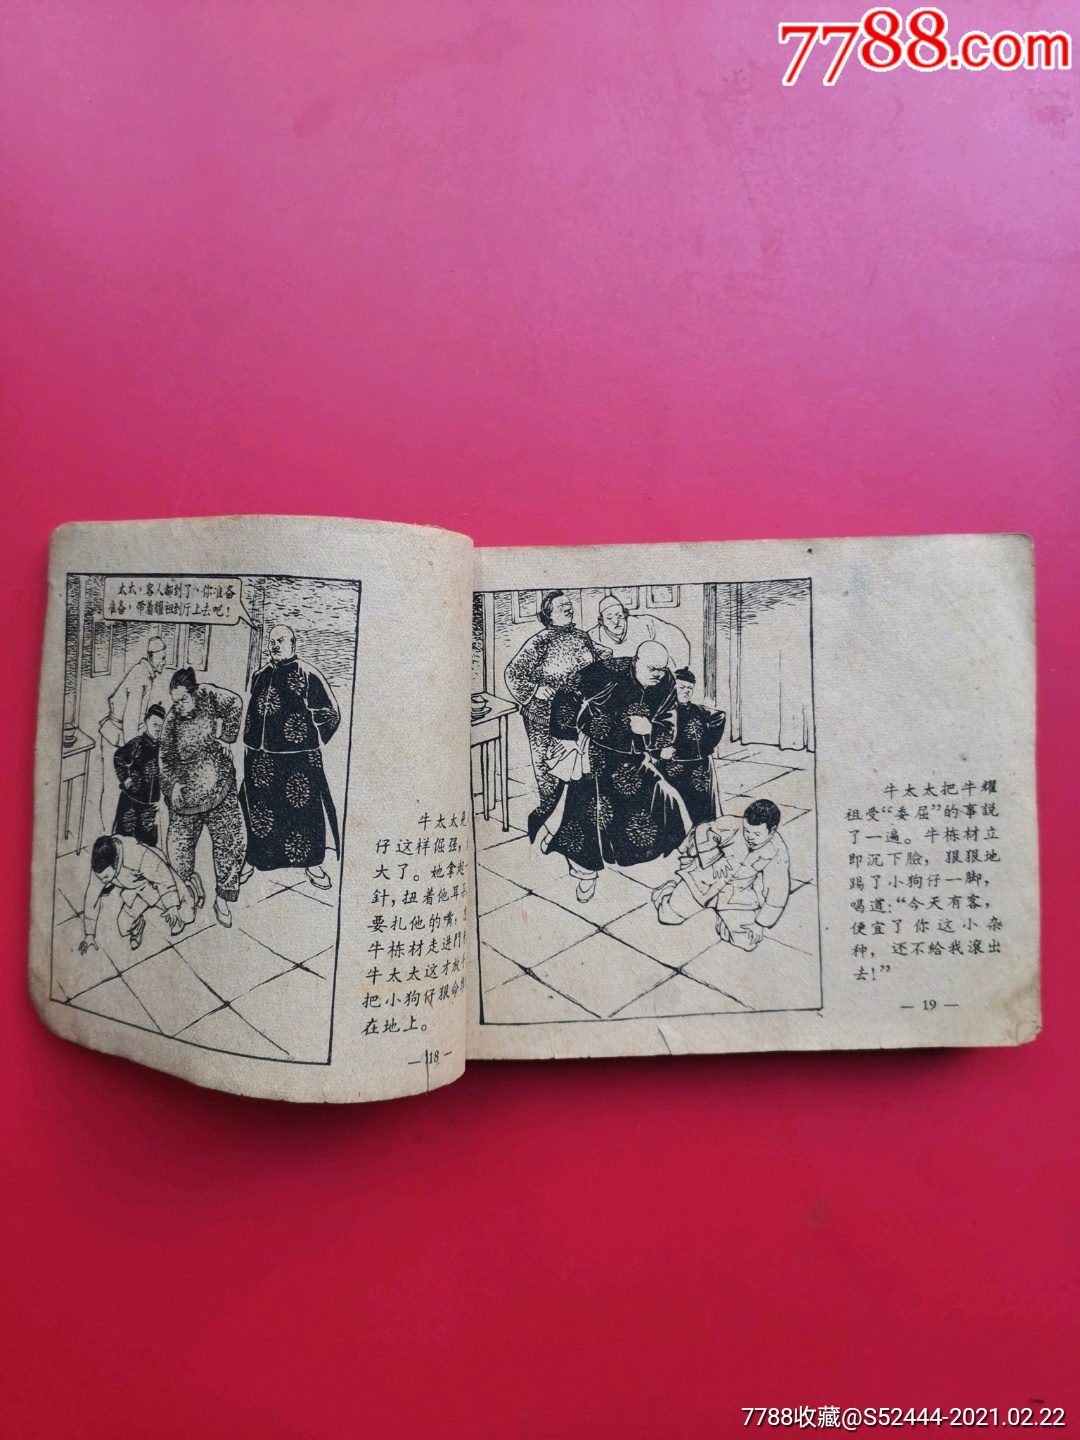 7788.com
太太，客人都到了，你准备
准备，带着耀祖到厅上去吧！
牛太太
仔这样倔强，
大了。她拿起
針，扭着他耳
要扎他的嘴，
牛栋材走进門
牛太太这才放
把小狗仔狠命
在地上。
— 18 —
牛太太把牛耀
祖受“委屈”的事説
了一遍。牛栋材立
即沉下臉，狠狠地
踢了小狗仔一脚，
喝道：“今天有客，
便宜了你这小杂
种，还不給我滚出
去！”
— 19 —
7788收藏@S52444-2021.02.22